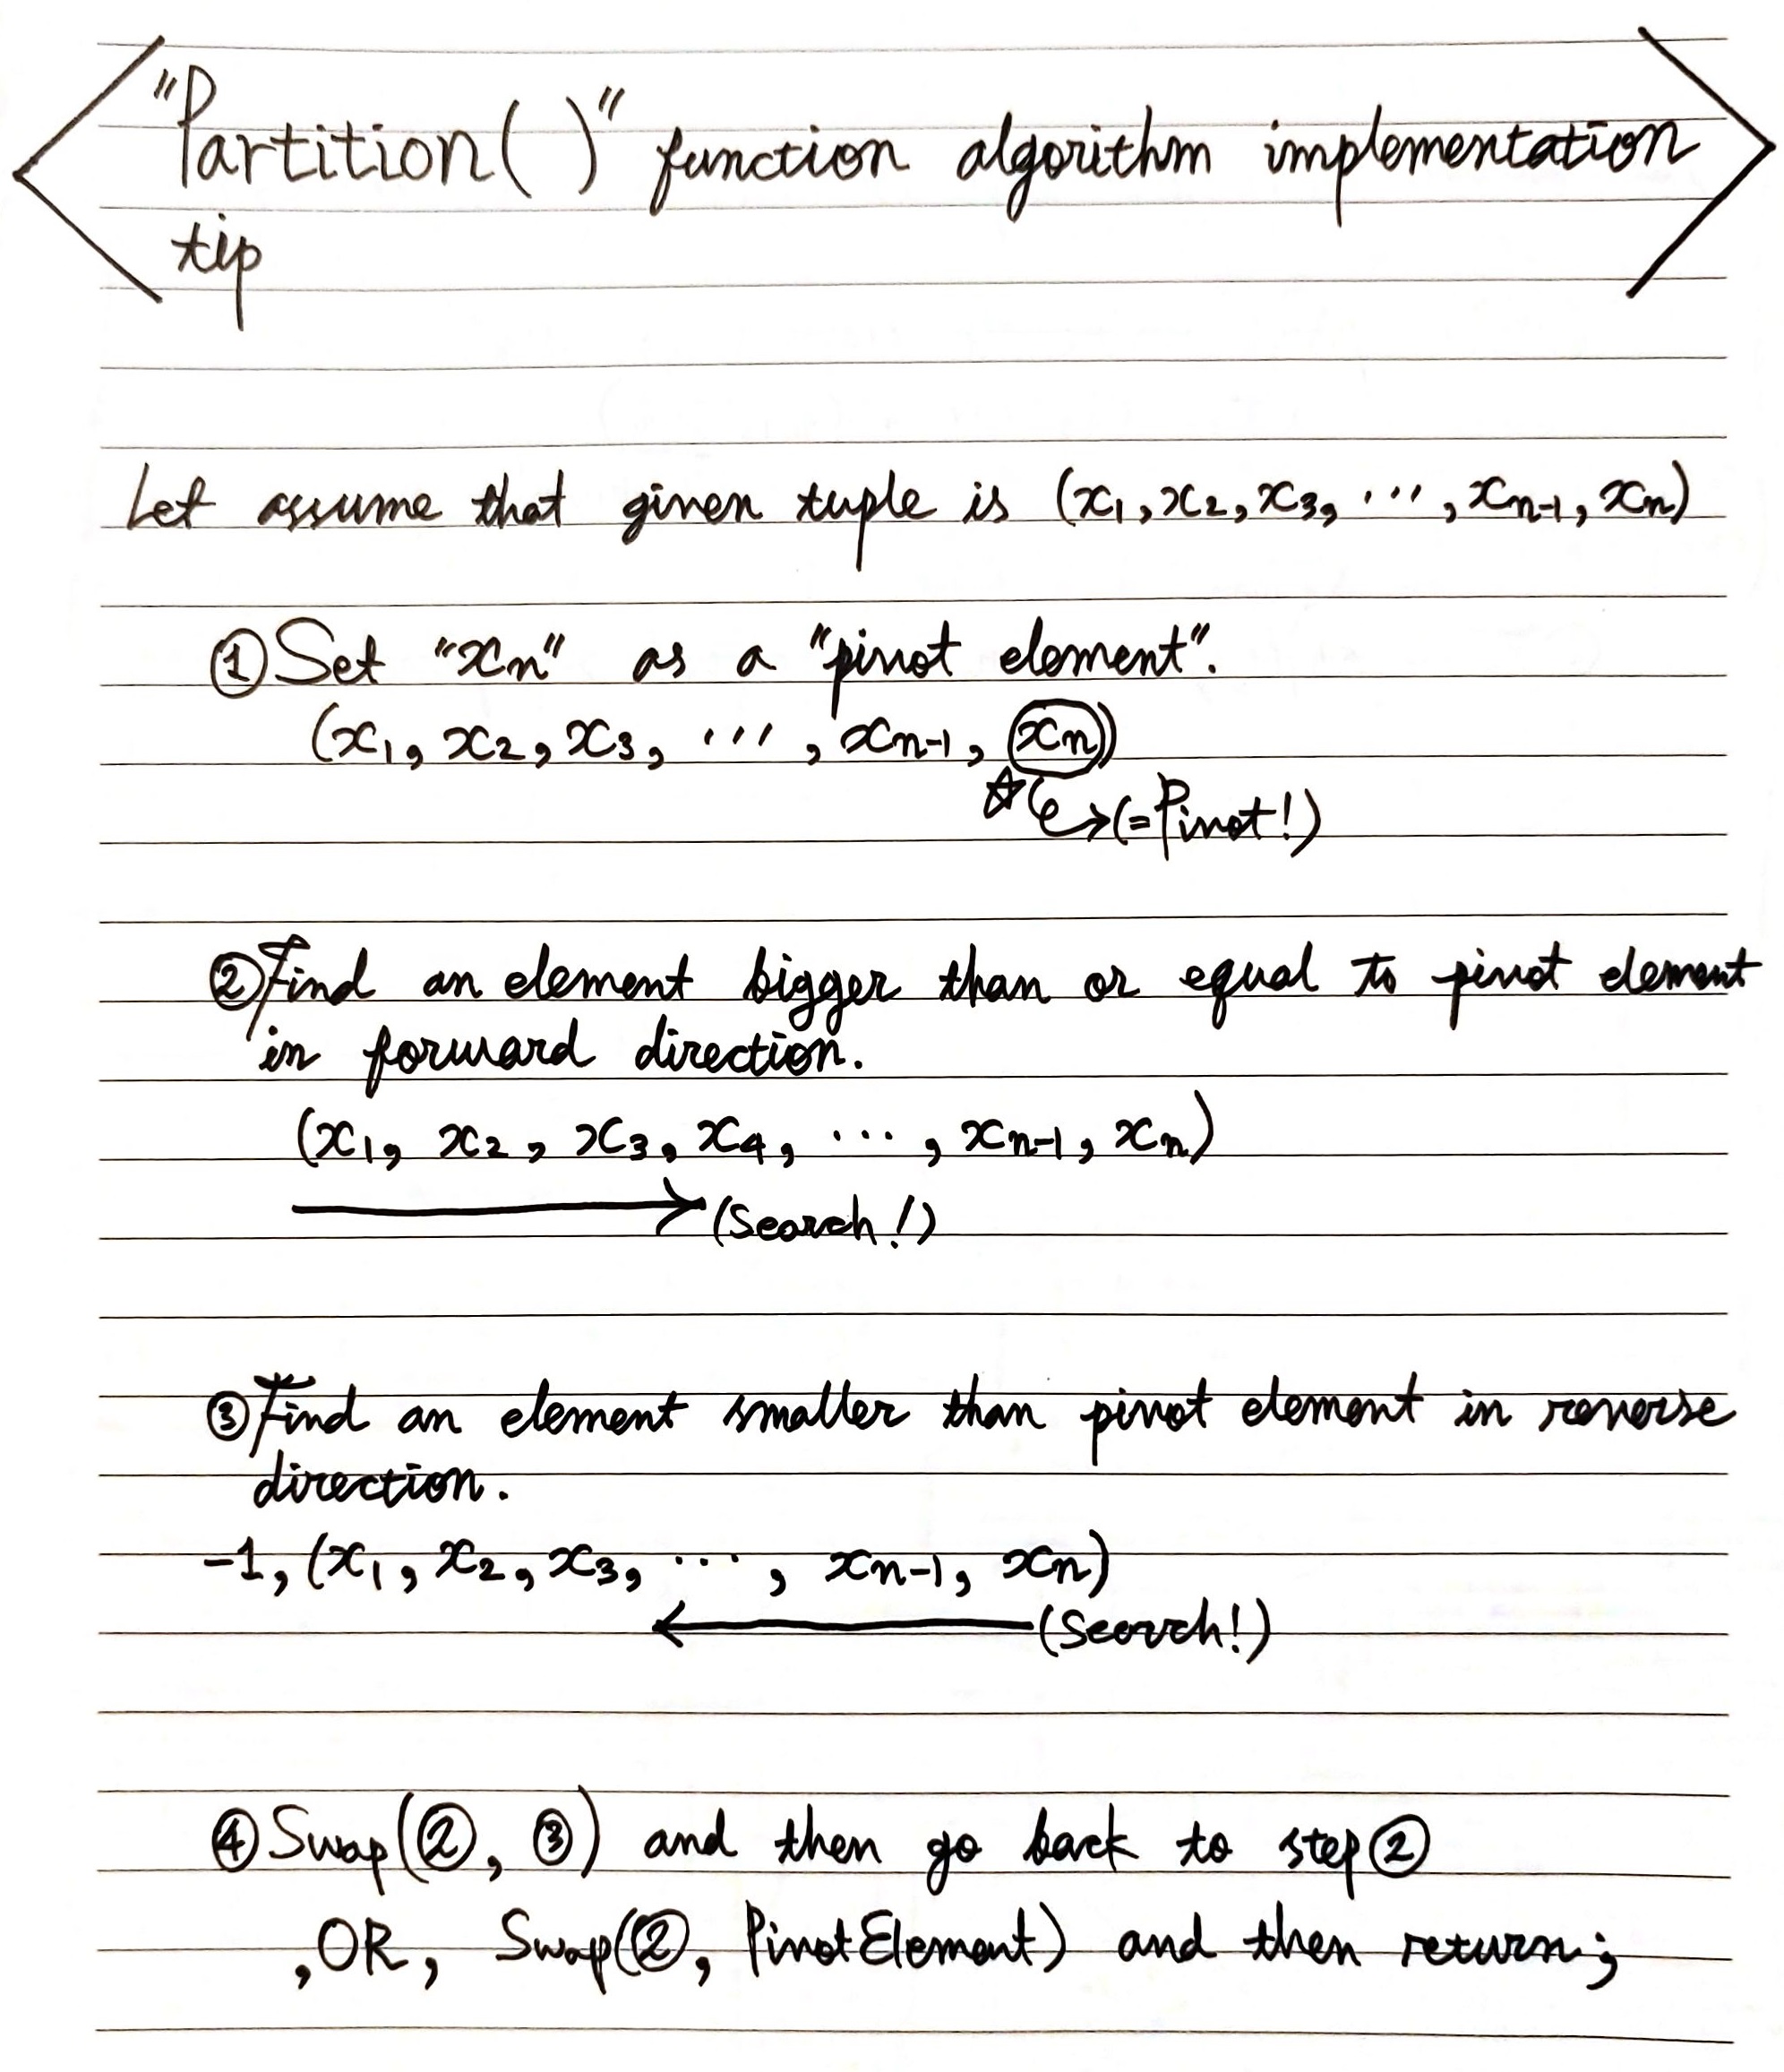 "Partition( )" function algorithm implementation
tip
Let assume that given tuple is (x₁, x₂, x₃, ..., xₙ₋₁, xₙ)
① Set "xₙ" as a "pivot element".
(x₁, x₂, x₃, ..., xₙ₋₁, xₙ)
☆ → (=Pivot!)
② Find an element bigger than or equal to pivot element
in forward direction.
(x₁, x₂, x₃, x₄, ..., xₙ₋₁, xₙ)
→ (Search!)
③ Find an element smaller than pivot element in reverse
direction.
-1, (x₁, x₂, x₃, ..., xₙ₋₁, xₙ)
← (Search!)
④ Swap(②, ③) and then go back to step ②
, OR, Swap(②, PivotElement) and then return;